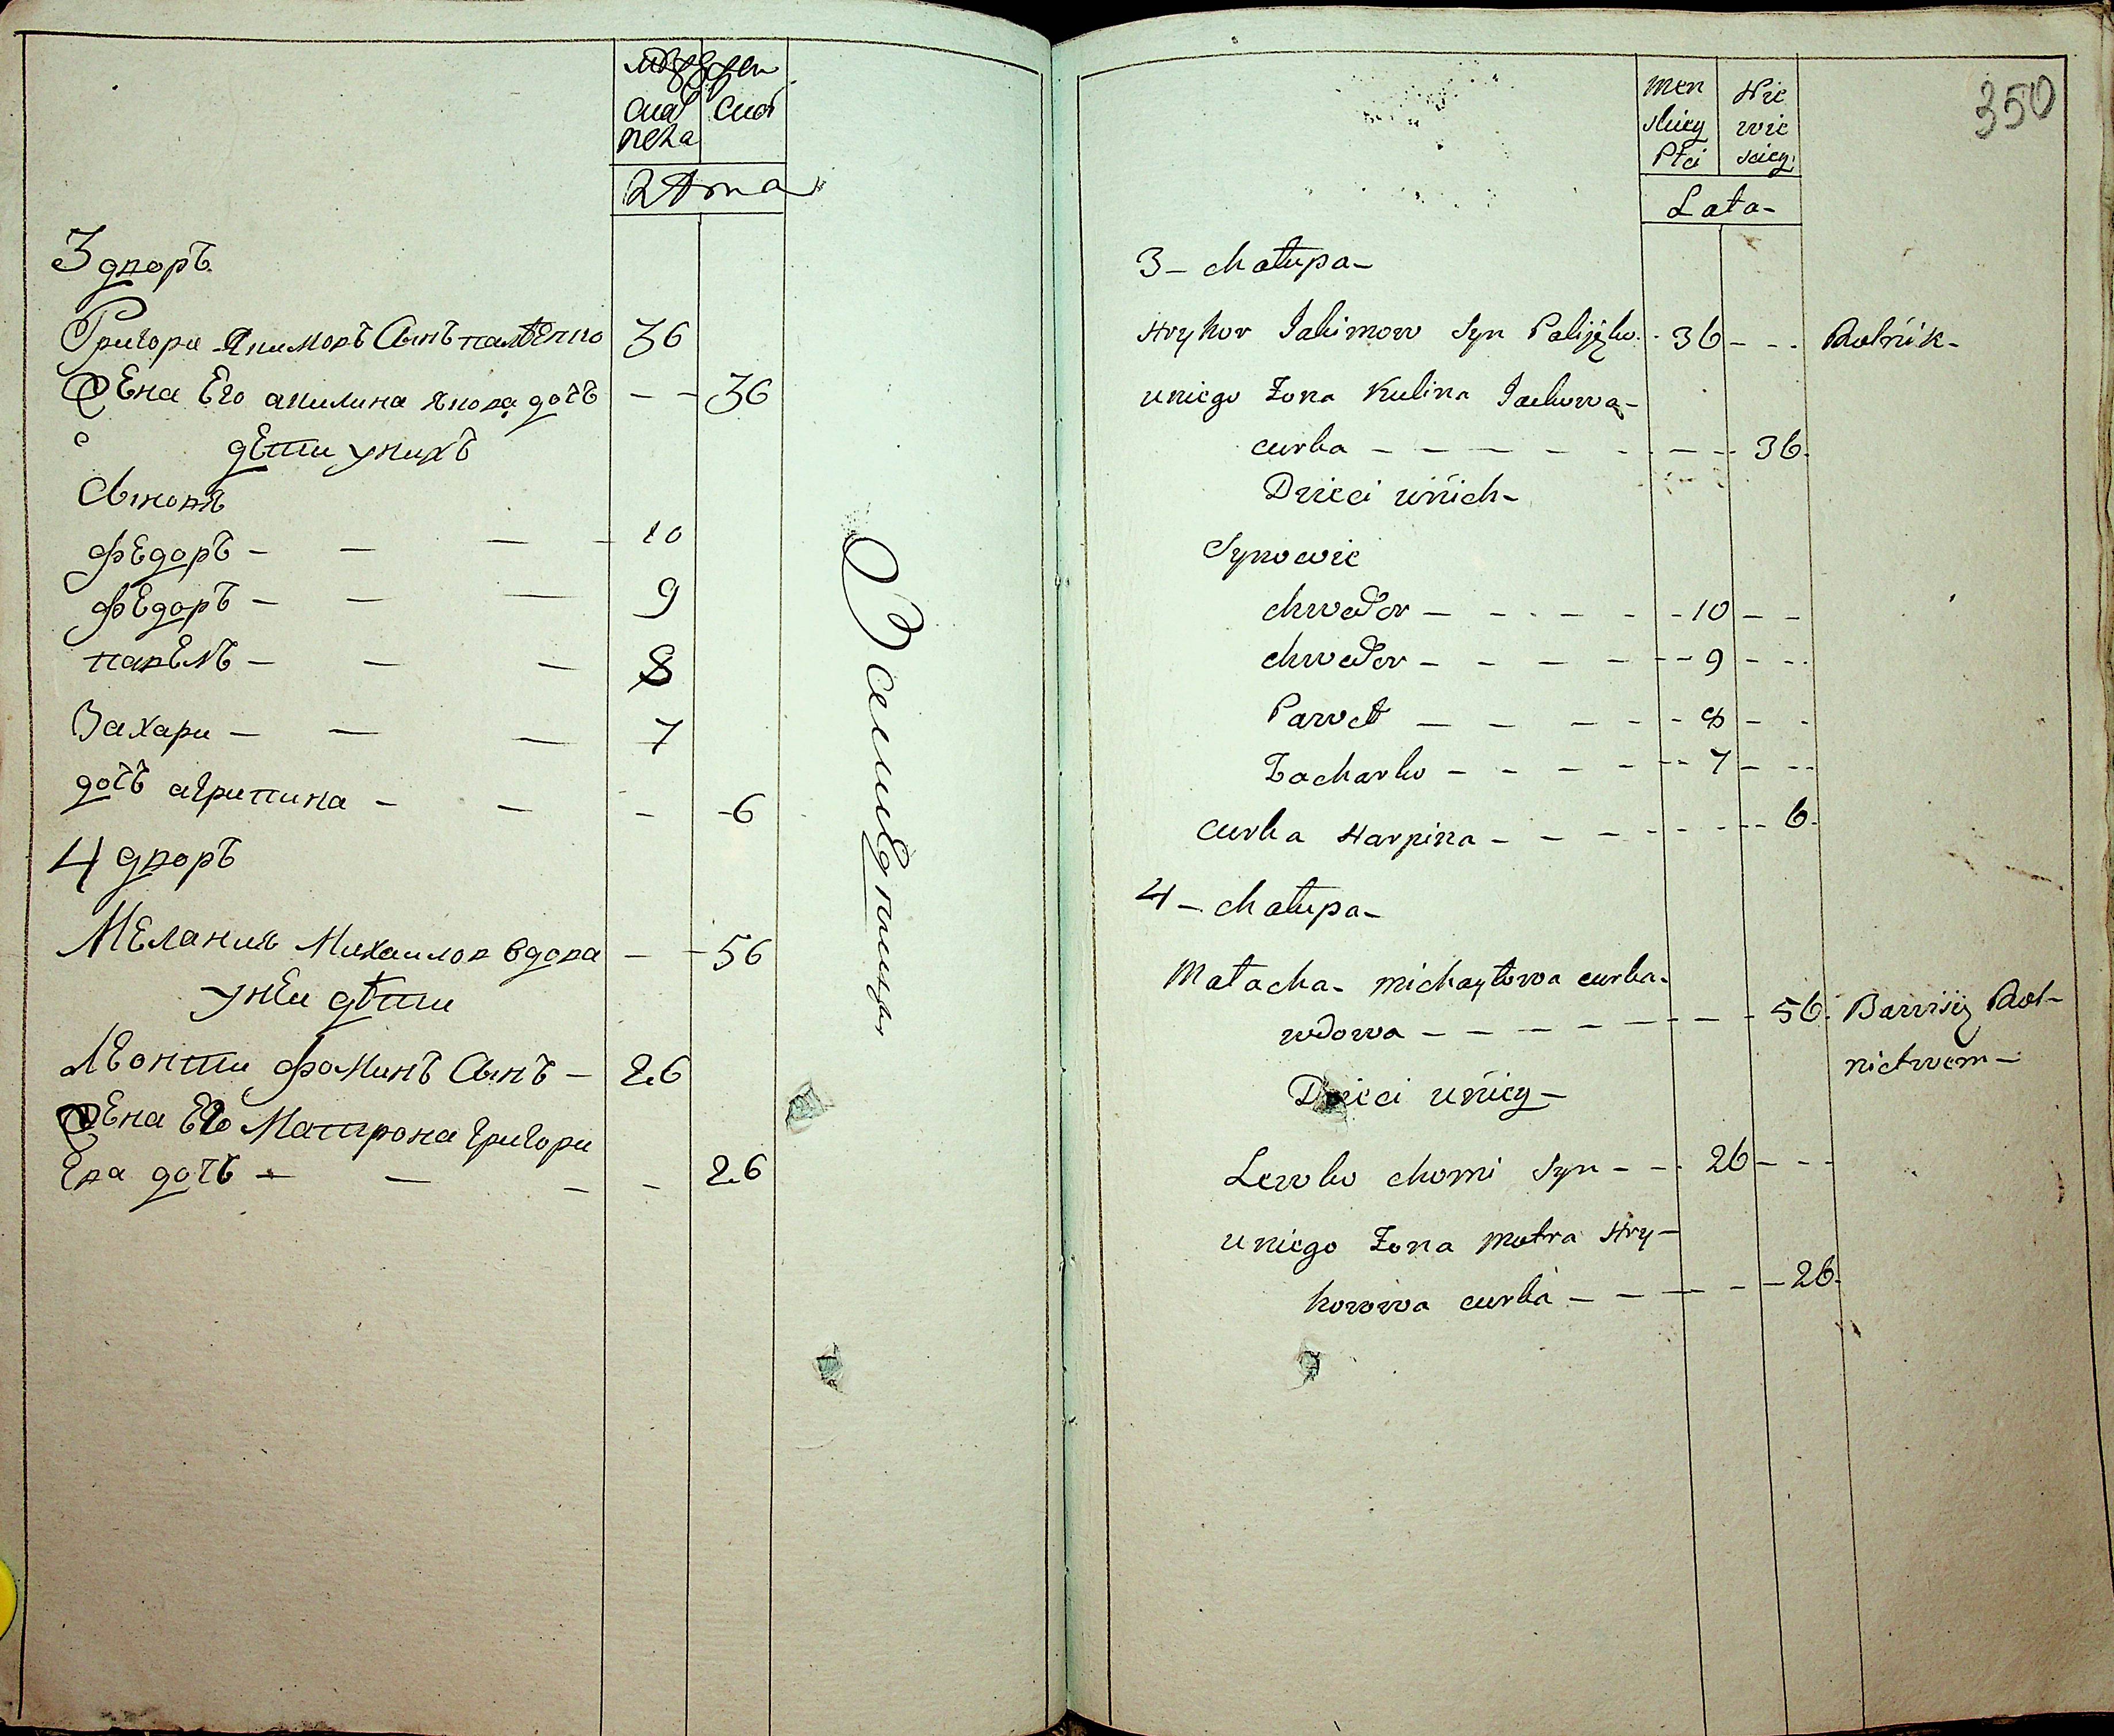 мужеска пола
женска
Лѣта
3 дворъ
Григори Якимовъ Сынъ палѣенко 36
Жена Его акилина якова дочъ – – 36
дѣти унихъ
Сыновя
Федоръ – – – 10
Федоръ – – – 9
павелъ – – – 8
Захари – – – 7
дочъ агрипина – – – 6
4 дворъ
Мелания Михаилов вдова – – 56
унеи дѣти
Леонти Фоминъ Сынъ – 26
Жена Его Матрона григори
Ева дочъ – – – – 26
Земледелецъ
350
Męn
skiey
Płci
Nie
wie
sciey
Lata –
3 – chałupa –
Hryhor Jakimow Syn Palijęko 36 – – – Rolnik –
uniego Żona Kulina Jackowa –
curka – – – – – – – 36
Dzieci unich –
Synowie
chwedor – – – – – 10 – –
chwedor – – – – – 9 – –
Paweł – – – – – 8 – –
Zacharko – – – – – 7 – –
curka Harpina – – – – – – – 6
4 – chałupa –
Małacha – michayłowa curka –
wdowa – – – – – – – – 56 Bawiący Rol–
nictwem –
Dzieci uniey –
Lewko chomi Syn – – – 26 – – –
uniego Żona motra Hry–
horowa curka – – – – – 26